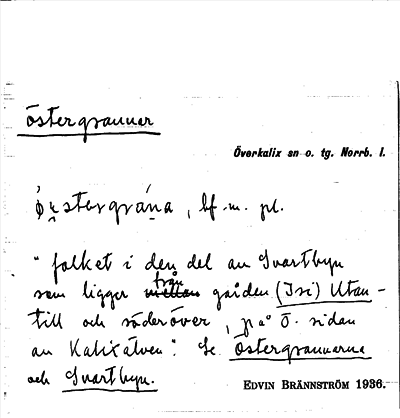 östergrannar
Överkalix sn o. tg. Norrb. l.
ǿʀ̥stergrána, bf. m. pl.
"folket i den del av Svartbyn
som ligger från gården (Isi) Utan-
till och söderöver, på Ö. sidan
av Kalixälven". Se Östergrannarna
och Svartbyn.
EDVIN BRÄNNSTRÖM 1936.